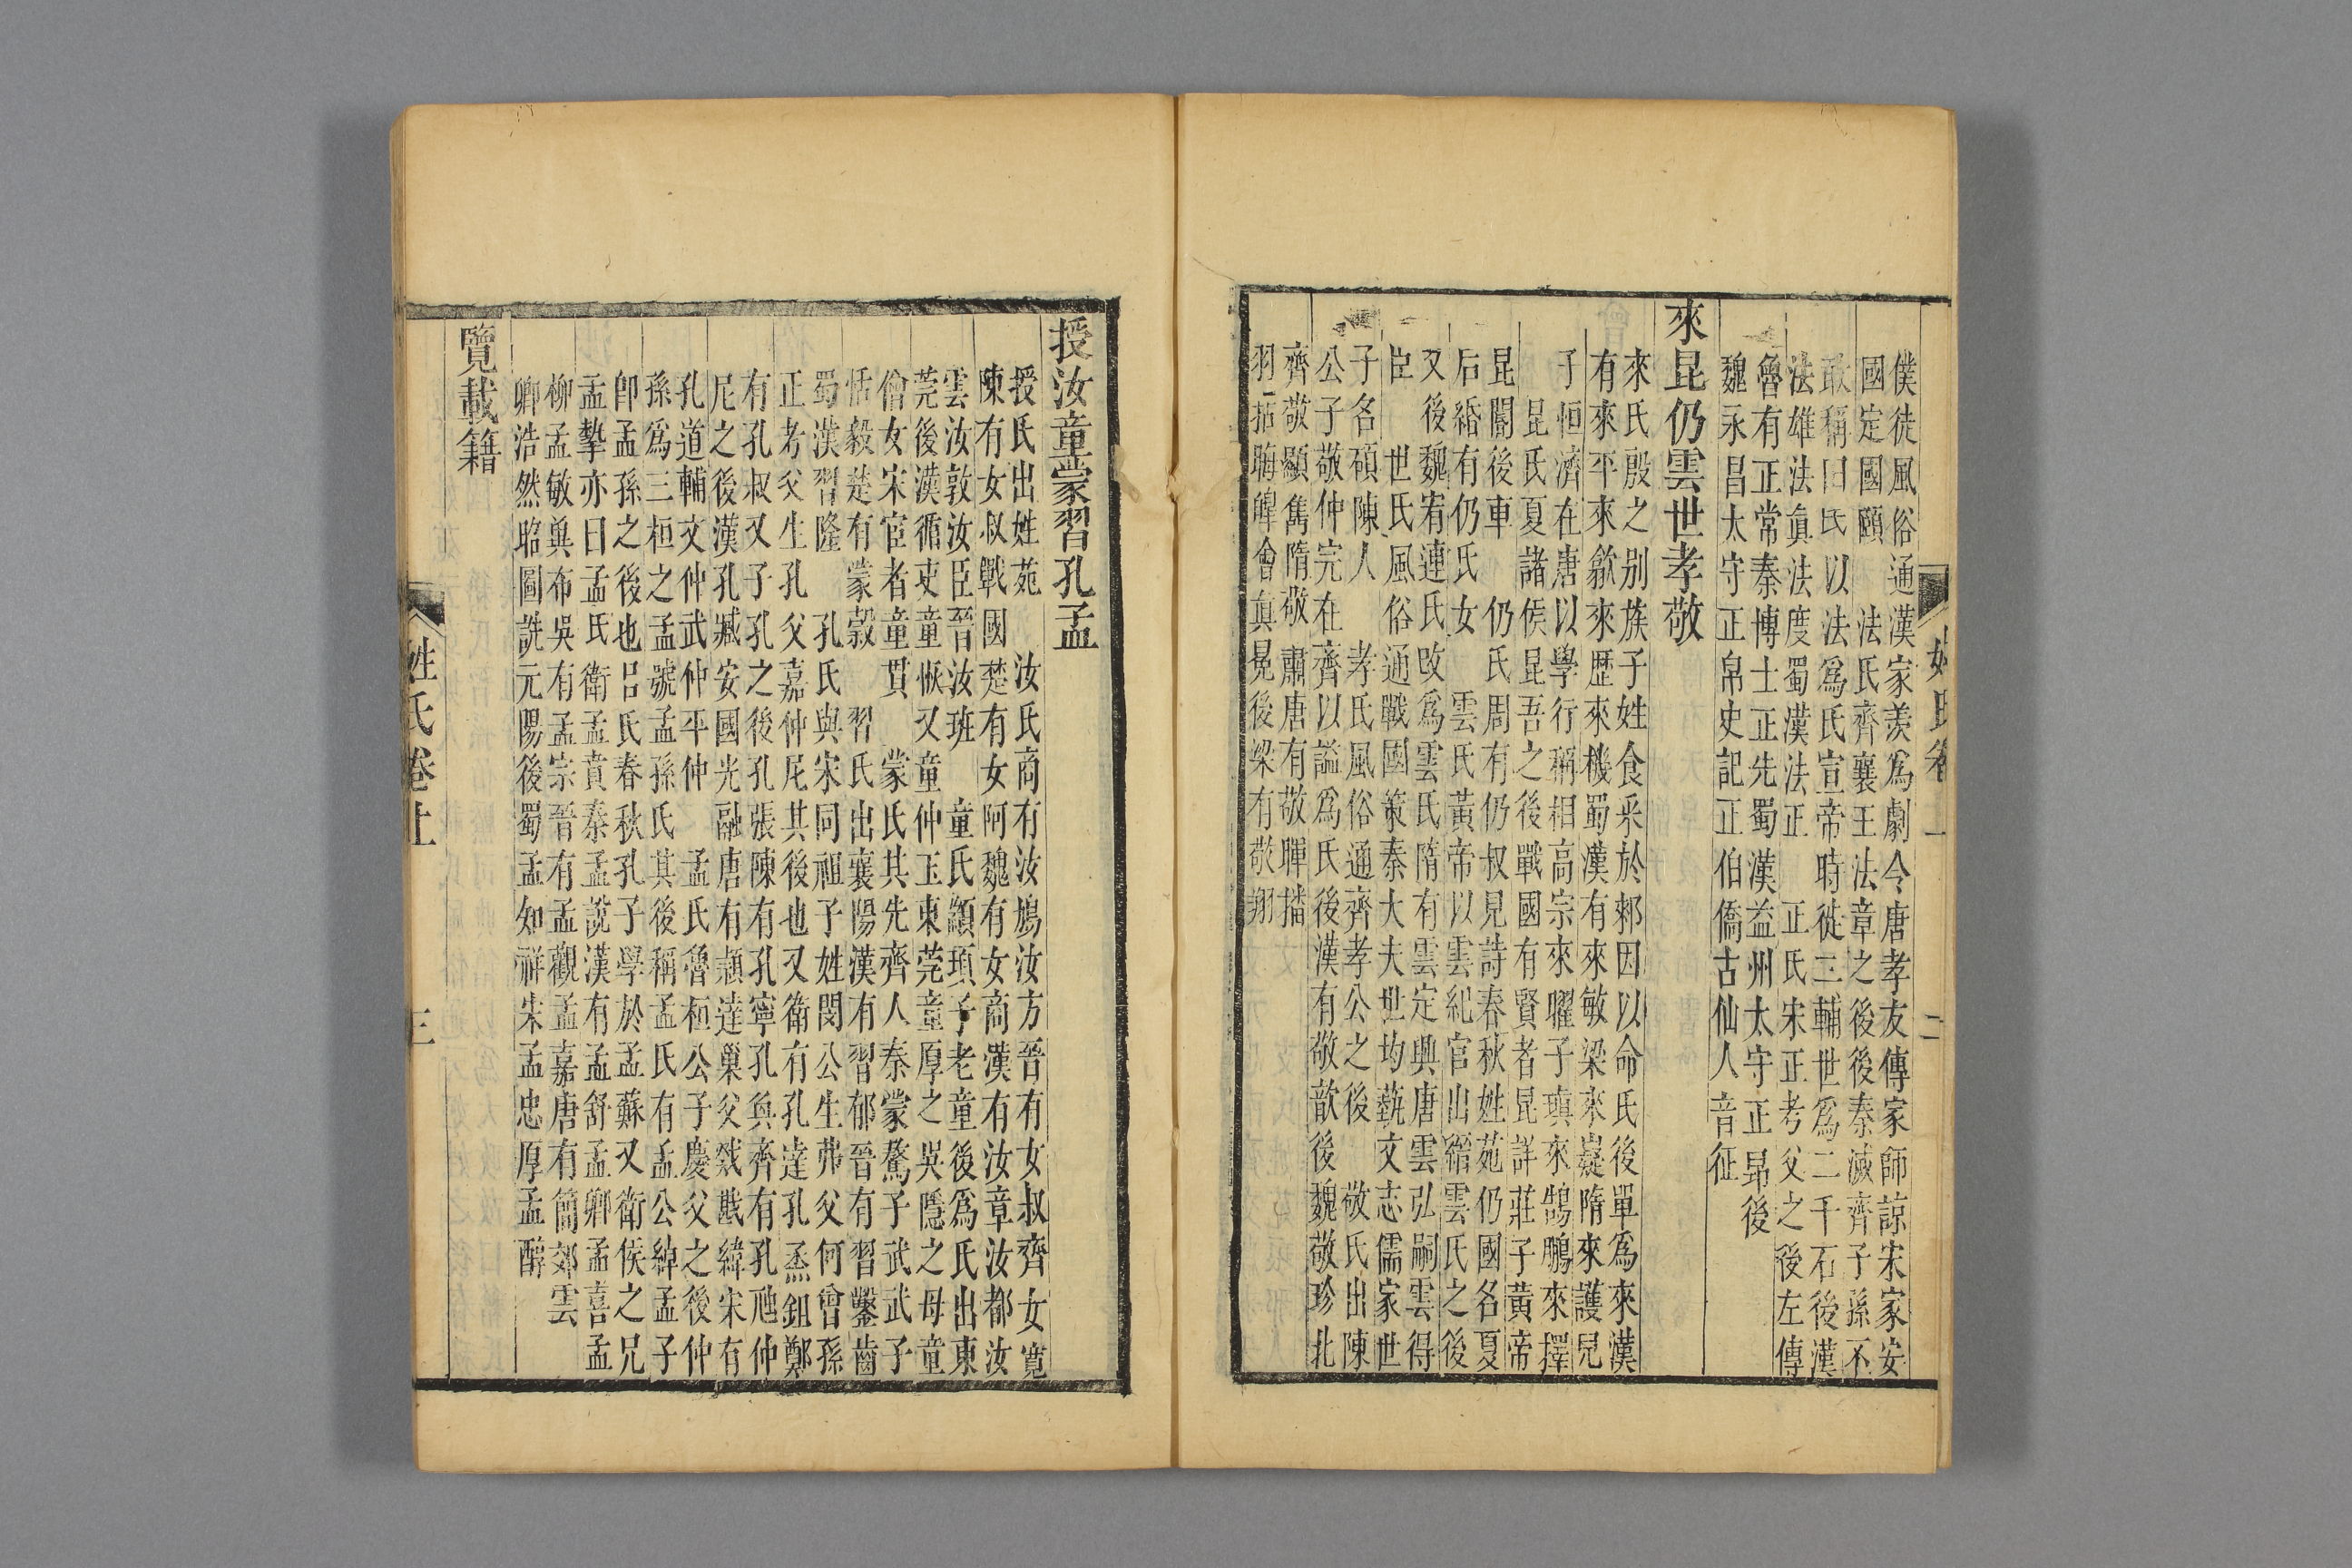 僕徒風俗通漢家羨爲劇令唐孝友傳家師諒宋家安
國定國頤 法氏齊襄王法章之後後秦滅齊子孫不
敢稱田氏以法爲氏宣帝時徙三輔世爲二千石後漢
法雄法眞法度蜀漢法正 正氏宋正考父之後左傳
魯有正常秦博士正先蜀漢益州太守正昂後
魏永昌太守正帛史記正伯僑古仙人音征
來昆仍雲世孝敬
來氏殷之别族子姓食采於郲因以命氏後單爲來漢
有來平來歙來歷來機蜀漢有來敏梁來嶷隋來護兒
子恒濟在唐以學行稱相高宗來曜子瑱來鵠鵬來擇
昆氏夏諸侯昆吾之後戰國有賢者昆詳莊子黃帝
昆閽後車 仍氏周有仍叔見詩春秋姓苑仍國名夏
后緡有仍氏女 雲氏黃帝以雲紀官出縉雲氏之後
又後魏宥連氏改爲雲氏隋有雲定興唐雲弘嗣雲得
臣 世氏風俗通戰國策秦大夫世均藝文志儒家世
子名碩陳人 孝氏風俗通齊孝公之後 敬氏出陳
公子敬仲完在齊以謚爲氏後漢有敬歆後魏敬珍北
齊敬顯雋隋敬肅唐有敬暉播
羽括晦皥會眞晃後梁有敬翔
姓氏卷上
二
授汝童蒙習孔孟
授氏出姓苑 汝氏商有汝鳩汝方晉有女叔齊女寬
陳有女叔戰國楚有女阿魏有女商漢有汝章汝都汝
雲汝敦汝臣晉汝班 童氏顓頊子老童後爲氏出東
莞後漢循吏童恢又童仲玉東莞童厚之吳隱之母童
儈女宋宦者童貫 蒙氏其先齊人秦蒙驁子武武子
恬毅楚有蒙穀 習氏出襄陽漢有習郁晉有習鑿齒
蜀漢習隆 孔氏與宋同祖子姓閔公生弗父何曾孫
正考父生孔父嘉仲尼其後也又衛有孔達孔烝鉏鄭
有孔叔又子孔之後孔張陳有孔寧孔奐齊有孔虺仲
尼之後漢孔臧安國光融唐有顓達巢父戣戡緯宋有
孔道輔文仲武仲平仲 孟氏魯桓公子慶父之後仲
孫爲三桓之孟號孟孫氏其後稱孟氏有孟公綽孟子
卽孟孫之後也呂氏春秋孔子學於孟蘇又衛侯之兄
孟摯亦曰孟氏衛孟賁秦孟說漢有孟舒孟卿孟喜孟
柳孟敏興布吳有孟宗晉有孟觀孟嘉唐有簡郊雲
卿浩然昭圖詵元陽後蜀孟知祥宋孟忠厚孟醇
覽載籍
姓氏卷上
三